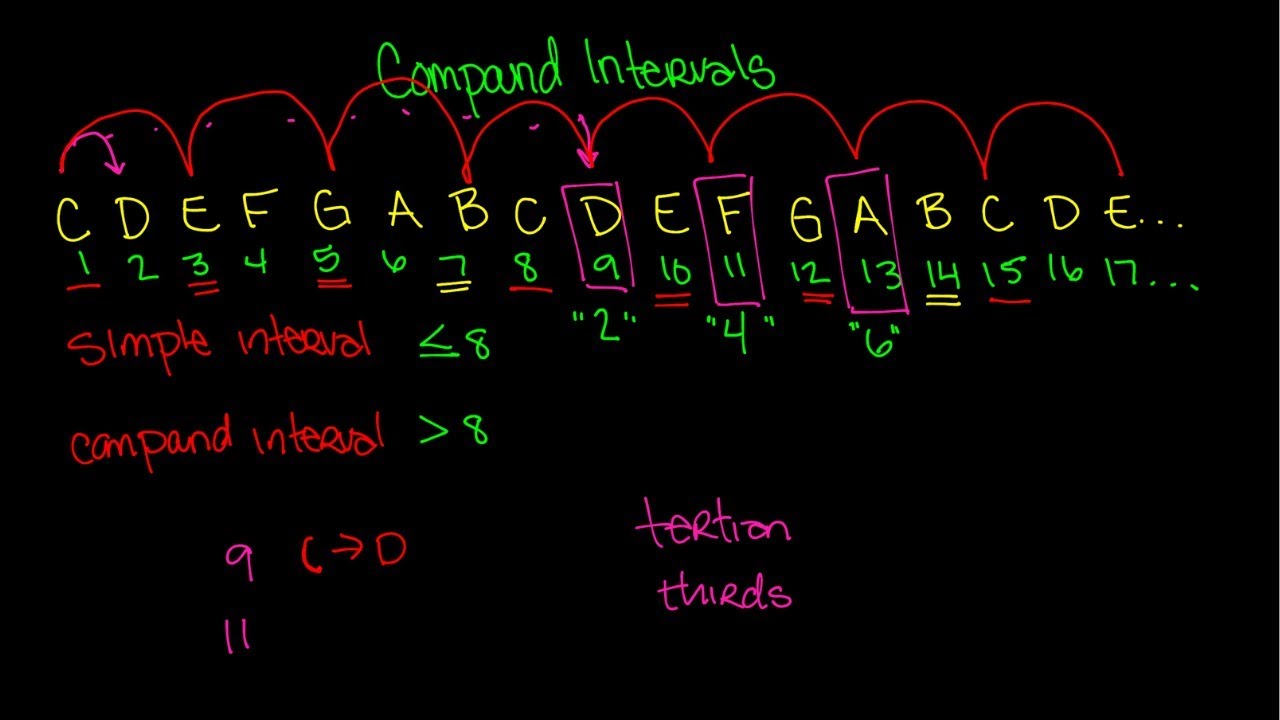 Compound Intervals
C D E F G A B C D E F G A B C D E...
1 2 3 4 5 6 7 8 9 10 11 12 13 14 15 16 17...
"2" "4" "6"
simple interval ≤8
compound interval >8
9 C→D
11
tertian
thirds